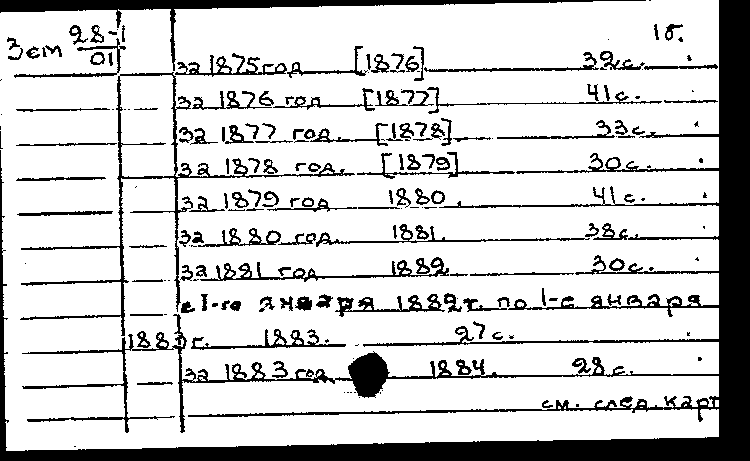 1б.
Зем 28-1
01
за 1875 год [1876] 32с.
за 1876 год [1877] 41с.
за 1877 год. [1878] 33с.
за 1878 год. [1879] 30с.
за 1879 год 1880. 41с.
за 1880 год. 1881. 38с.
за 1881 год 1882 30с.
с 1-го января 1882г. по 1-е января
1883г. 1883. 27с.
за 1883 год 1884. 28с.
см. след. карт